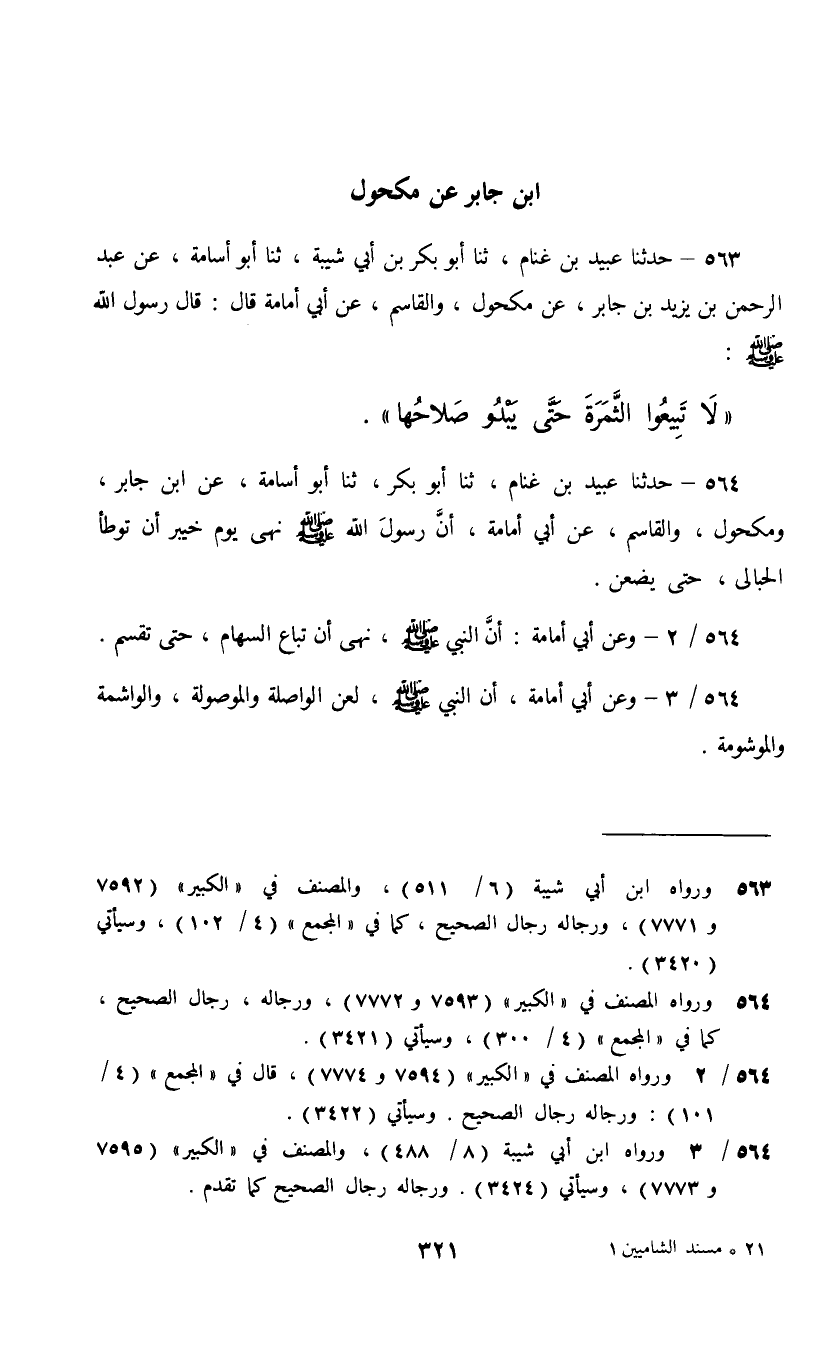 ابن جابر عن مكحول
٥٦٣ – حدثنا عبيد بن غنام ، ثنا أبو بكر بن أبي شيبة ، ثنا أبو أسامة ، عن عبد
الرحمن بن يزيد بن جابر ، عن مكحول ، والقاسم ، عن أبي أمامة قال : قال رسول الله
ﷺ :
« لَا تَبِيعُوا الثَّمَرَةَ حَتَّى يَبْدُو صَلاحُها » .
٥٦٤ – حدثنا عبيد بن غنام ، ثنا أبو بكر ، ثنا أبو أسامة ، عن ابن جابر ،
ومكحول ، والقاسم ، عن أبي أمامة ، أنَّ رسولَ الله ﷺ نهى يوم خيبر أن توطأ
الحبالى ، حتى يضعن .
٥٦٤ / ٢ – وعن أبي أمامة : أنَّ النبي ﷺ ، نهى أن تباع السهام ، حتى تقسم .
٥٦٤ / ٣ – وعن أبي أمامة ، أن النبي ﷺ ، لعن الواصلة والموصولة ، والواشمة
والموشومة .
٥٦٣ ورواه ابن أبي شيبة (٦ / ٥١١) ، والمصنف في «الكبير» (٧٥٩٢
و ٧٧٧١) ، ورجاله رجال الصحيح ، كما في «المجمع» (٤ / ١٠٢) ، وسيأتي
(٣٤٢٠) .
٥٦٤ ورواه المصنف في «الكبير» (٧٥٩٣ و ٧٧٧٢) ، ورجاله ، رجال الصحيح ،
كما في «المجمع» (٤ / ٣٠٠) ، وسيأتي (٣٤٢١) .
٥٦٤ / ٢ ورواه المصنف في «الكبير» (٧٥٩٤ و ٧٧٧٤) ، قال في «المجمع» (٤ /
١٠١) : ورجاله رجال الصحيح . وسيأتي (٣٤٢٢) .
٥٦٤ / ٣ ورواه ابن أبي شيبة (٨ / ٤٨٨) ، والمصنف في «الكبير» (٧٥٩٥
و ٧٧٧٣) ، وسيأتي (٣٤٢٤) . ورجاله رجال الصحيح كما تقدم .
٢١ ه مسند الشاميين ١
٣٢١